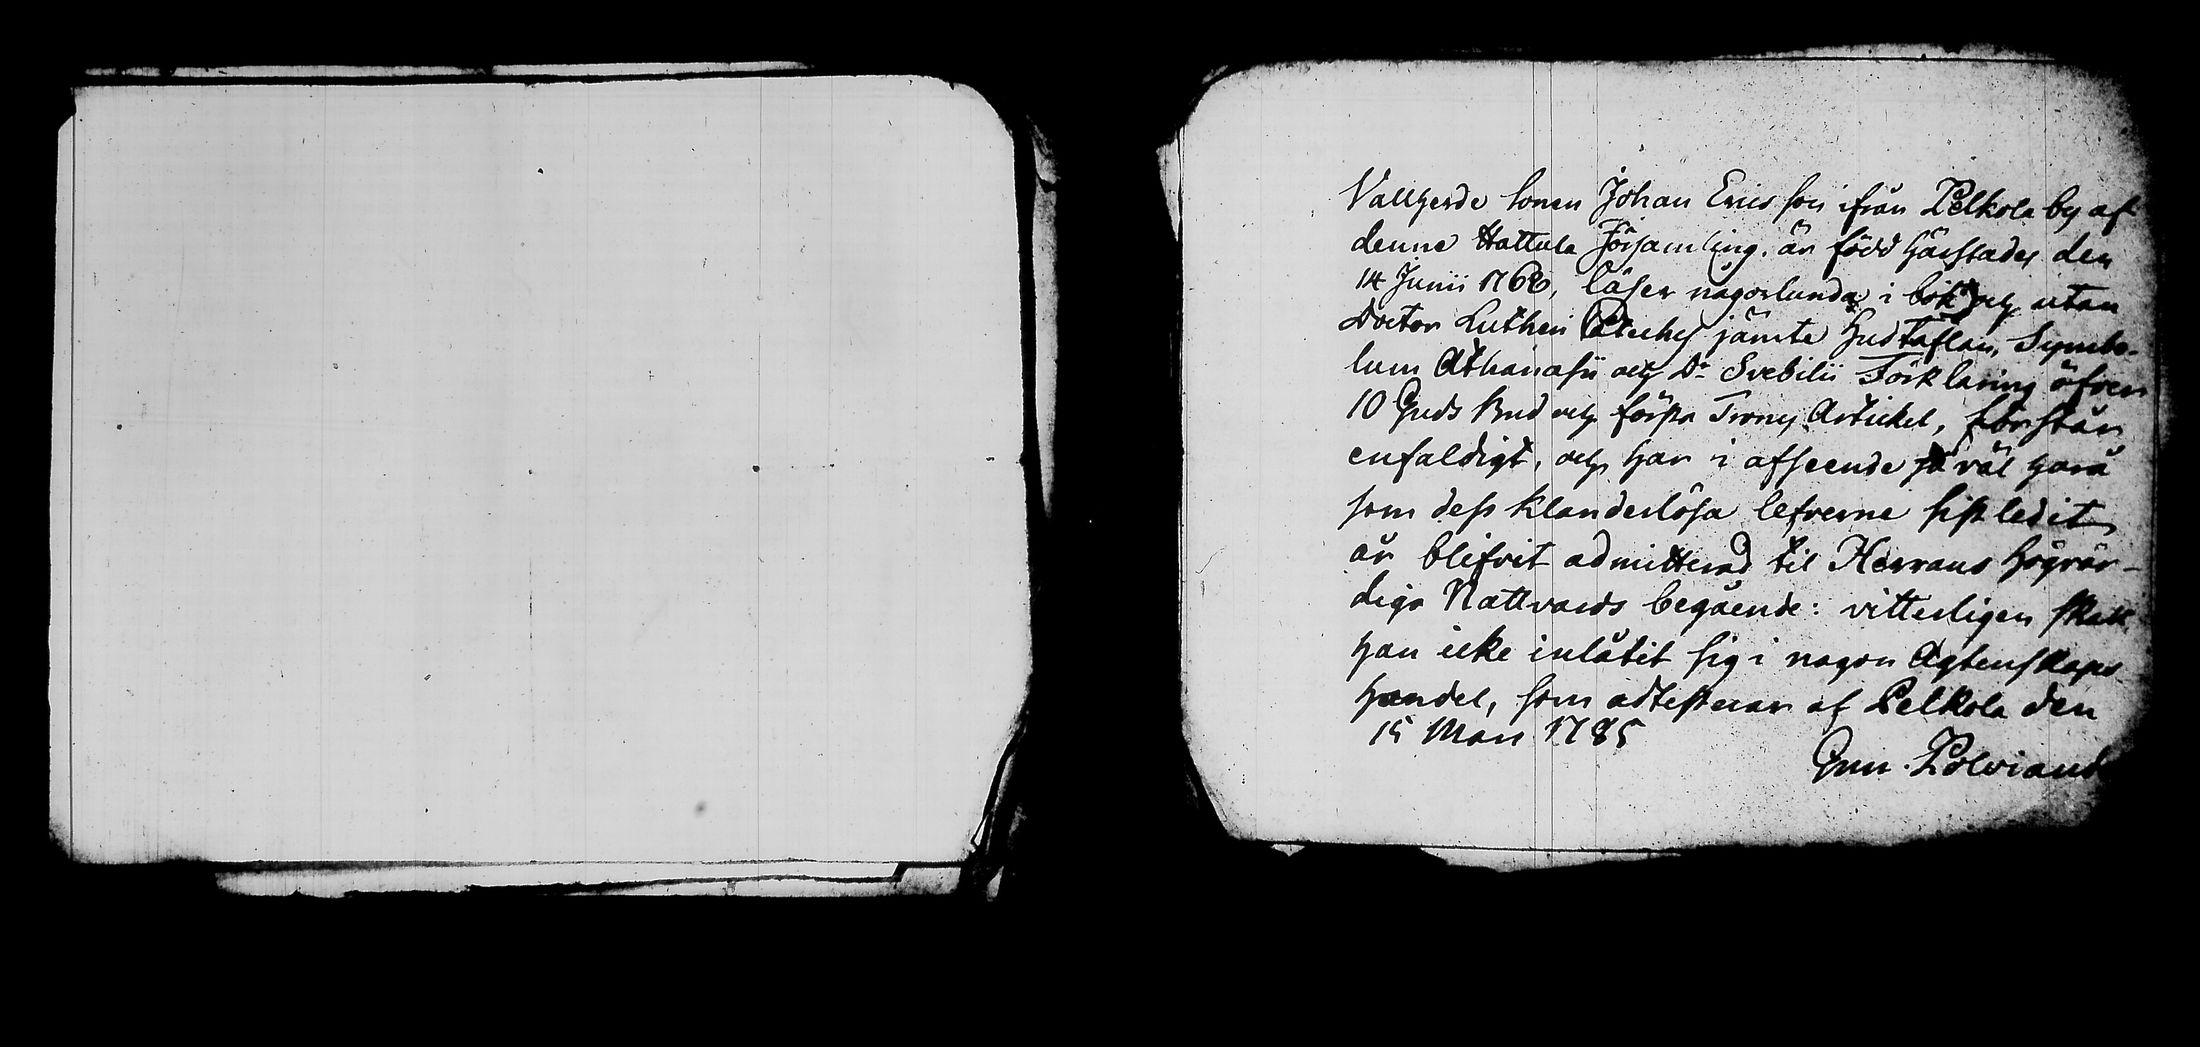 Vallgerde sonen Johan Ericsson ifrån Pelkola by af
denne Hattula Församling, är född härstades den
14 Junii 1768, läser någorlunda i bok och utan
Doctor Lutheri Cateches jämte Hustaflan, Symbo-
lum Athanasii och Dr Svebilii Förklaring öfver
10 Guds Bud och första Trones Artickel, förstår
enfaldigt, och har i afseende så väl härå
som dess klanderlösa lefverne sistledit
år blifvit admitterad til Herrans högvär-
diga Nattvards begående: vitterligen skall
han icke inlåtit sig i någon Ägtenskaps
handel, som adtesterar af Pelkola den
15 Mars 1785
Polviand